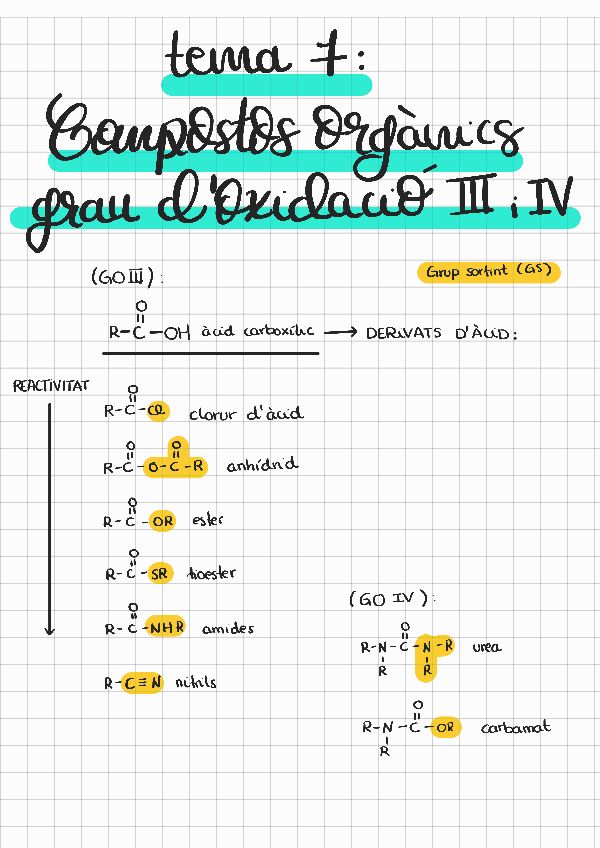 tema 7:
Compostos orgànics
grau d'oxidació III i IV
(GO III):
Grup sortint (GS)
O
R-C-OH àcid carboxílic → DERIVATS D'ÀCID:
REACTIVITAT
O
R-C-Cl clorur d'àcid
O O
R-C-O-C-R anhídrid
O
R-C-OR ester
O
R-C-SR tioester
O
R-C-NHR amides
R-C≡N nitrils
(GO IV):
O
R-N-C-N-R urea
R R
O
R-N-C-OR carbamat
R